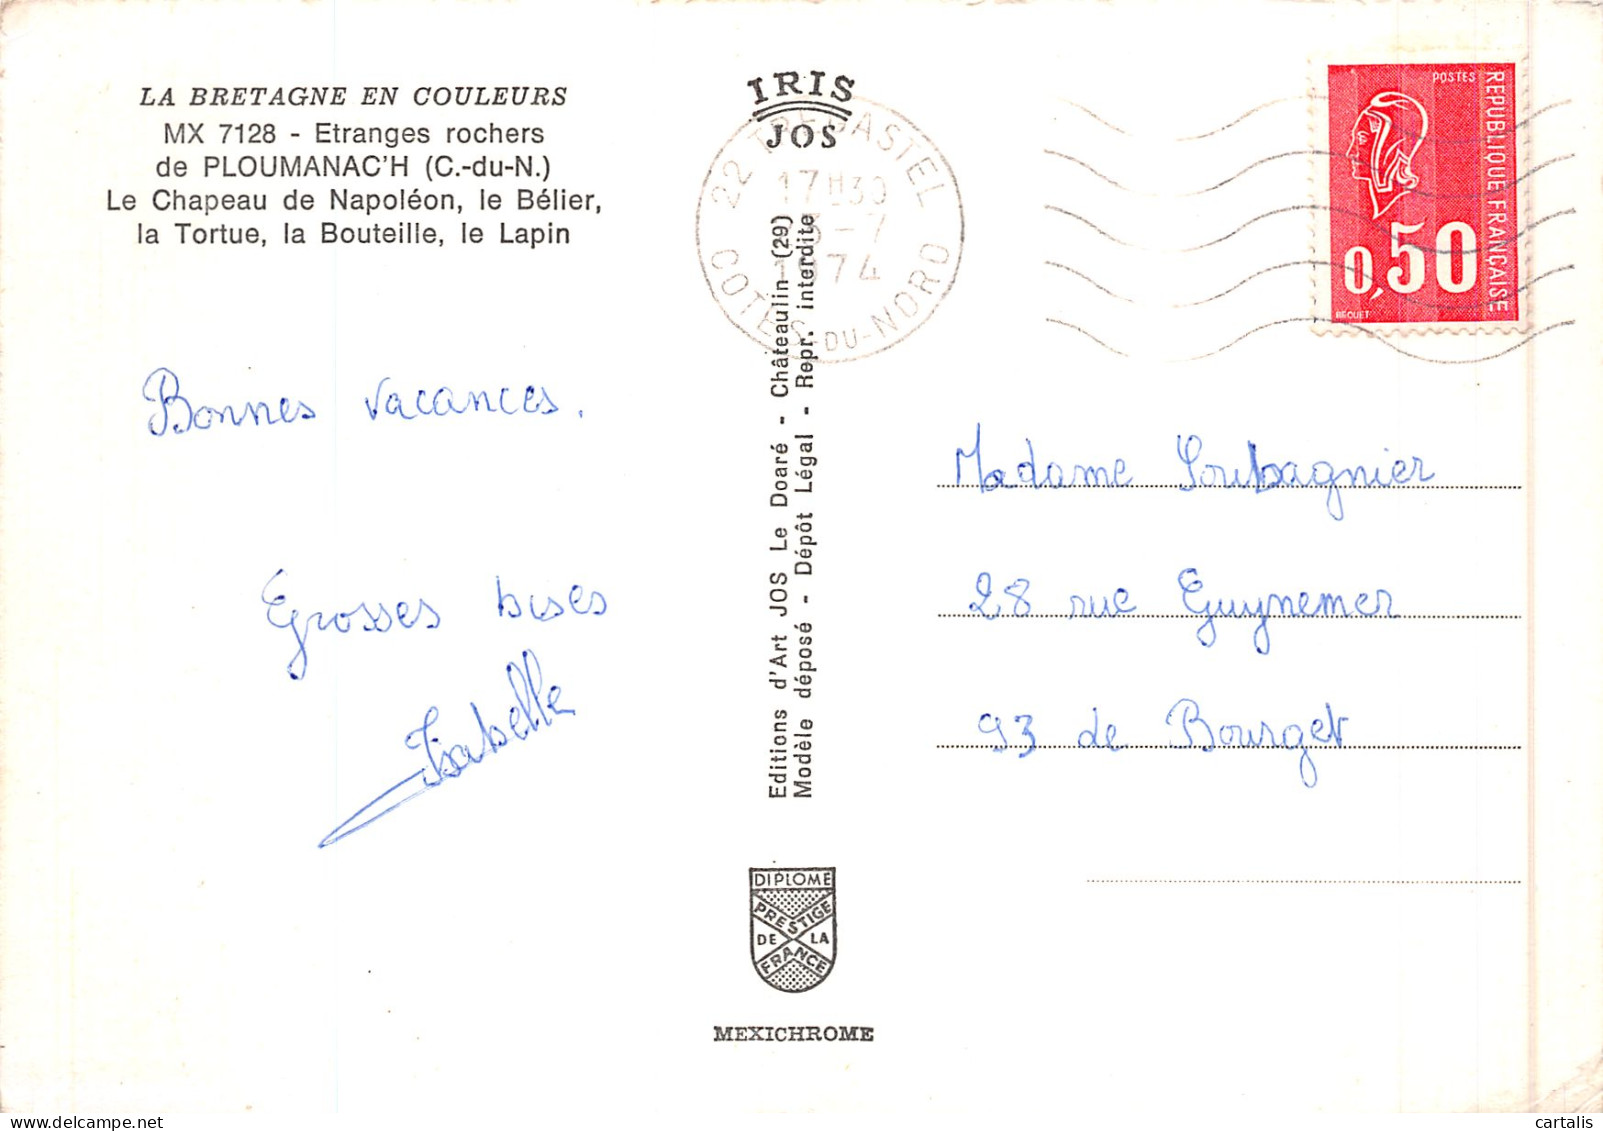 LA BRETAGNE EN COULEURS
MX 7128 - Etranges rochers
de PLOUMANAC'H (C.-du-N.)
Le Chapeau de Napoléon, le Bélier,
la Tortue, la Bouteille, le Lapin
Bonnes vacances.
Grosses bises
Isabelle
IRIS
JOS
22 TREGASTEL
17H30
-7
1974
COTES-DU-NORD
Editions d'Art JOS Le Doaré - Châteaulin (29)
Modèle déposé - Dépôt Légal - Repr. interdite
DIPLOME
PRESTIGE
DE LA
FRANCE
MEXICHROME
POSTES
REPUBLIQUE FRANÇAISE
0,50
BEQUET
Madame Soubagnier
28 rue Guynemer
93 de Bourget
cartalis